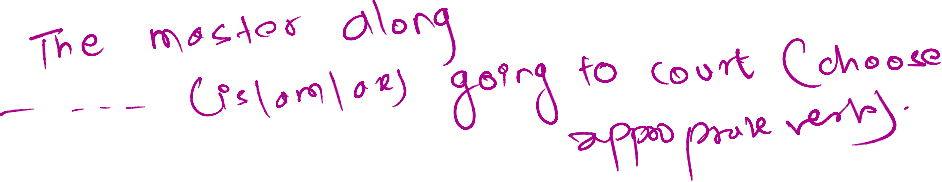 The master along
_ _ _ _ (is/am/are) going to court (choose
appropriate verb).